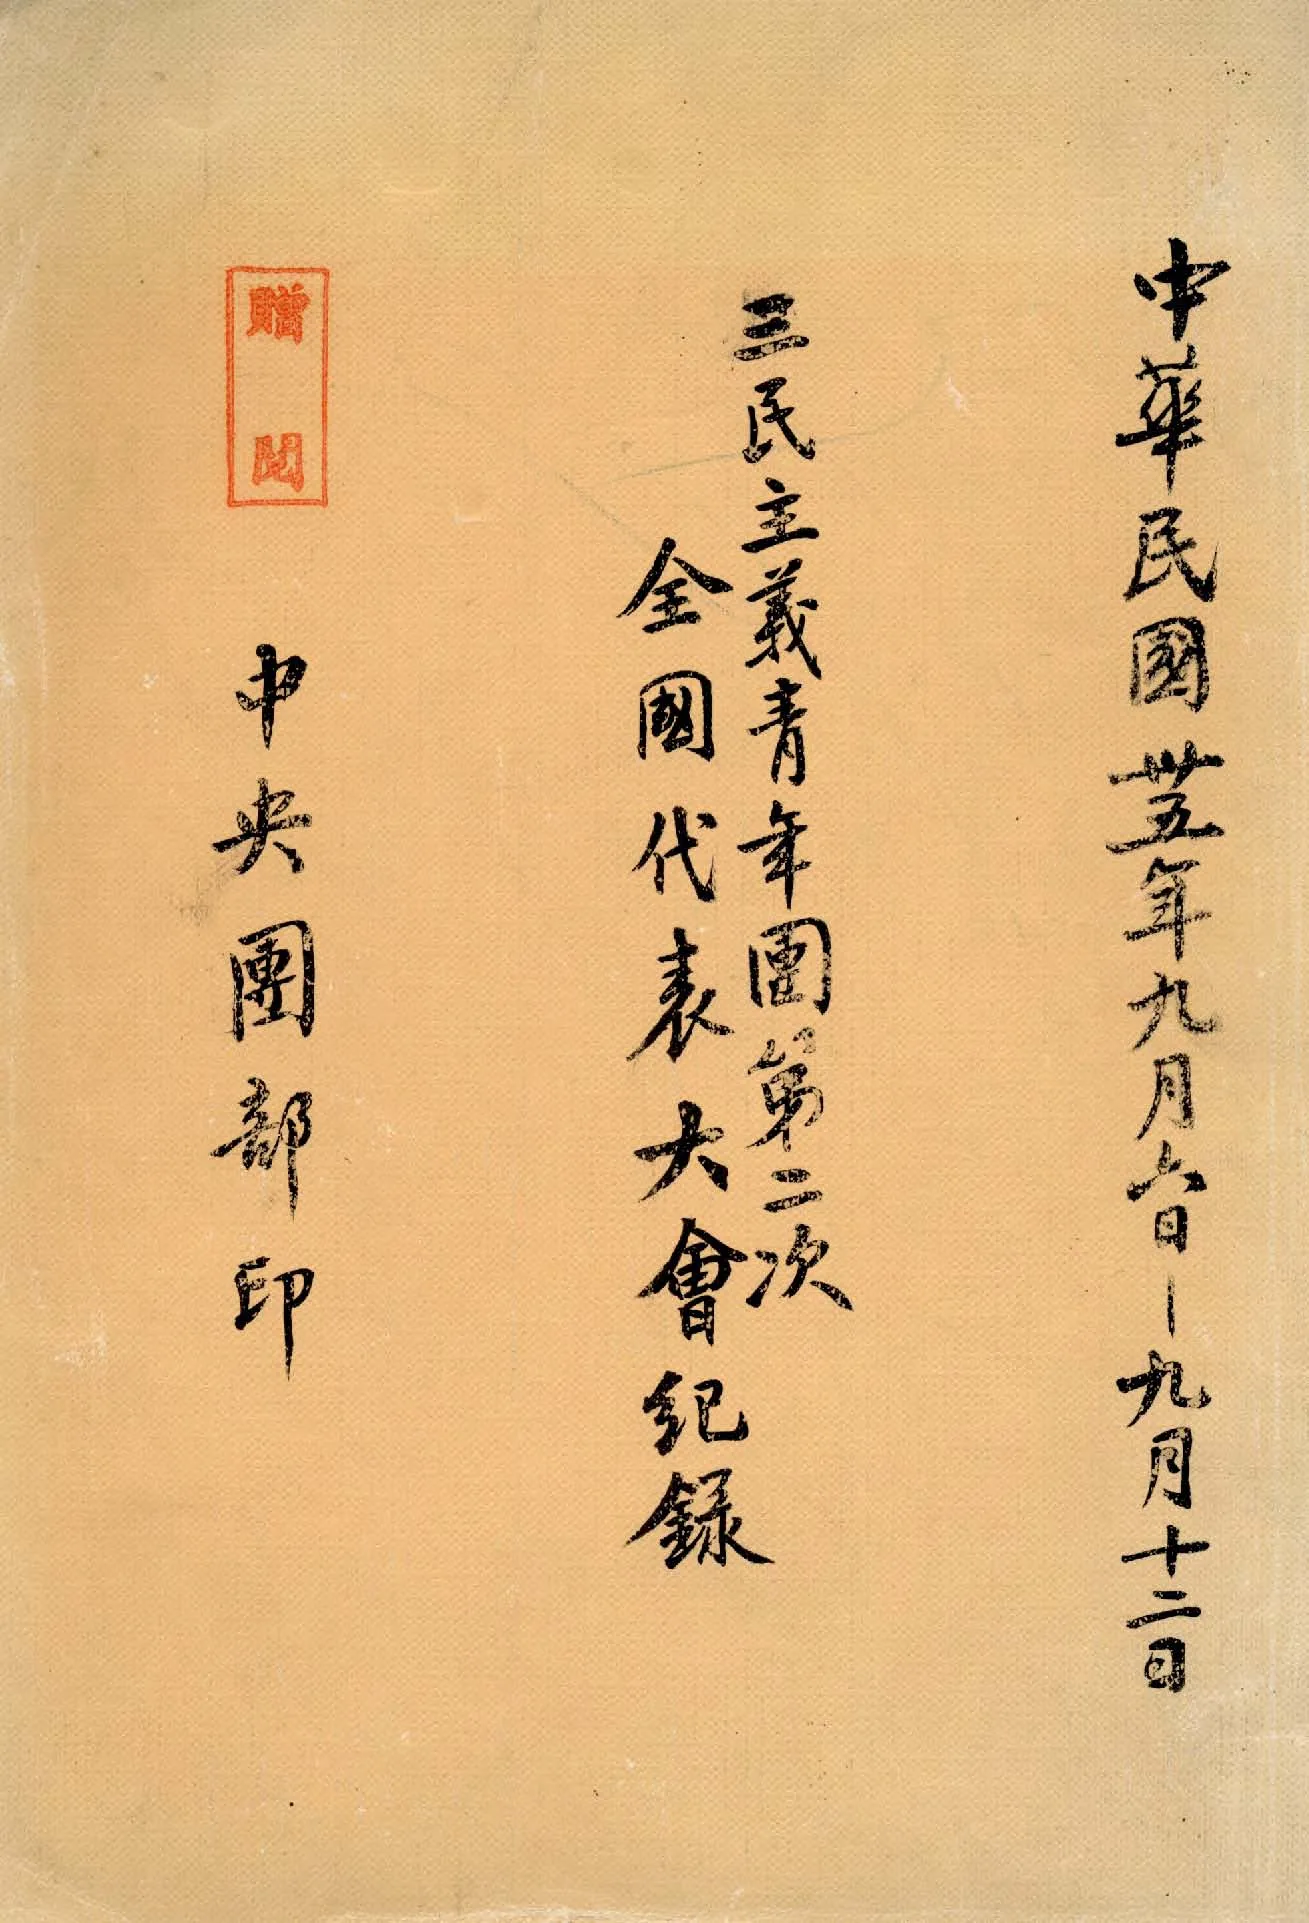 中華民國卅五年九月六日—九月十二日
三民主義青年團第二次
全國代表大會紀錄
贈閱
中央團部印